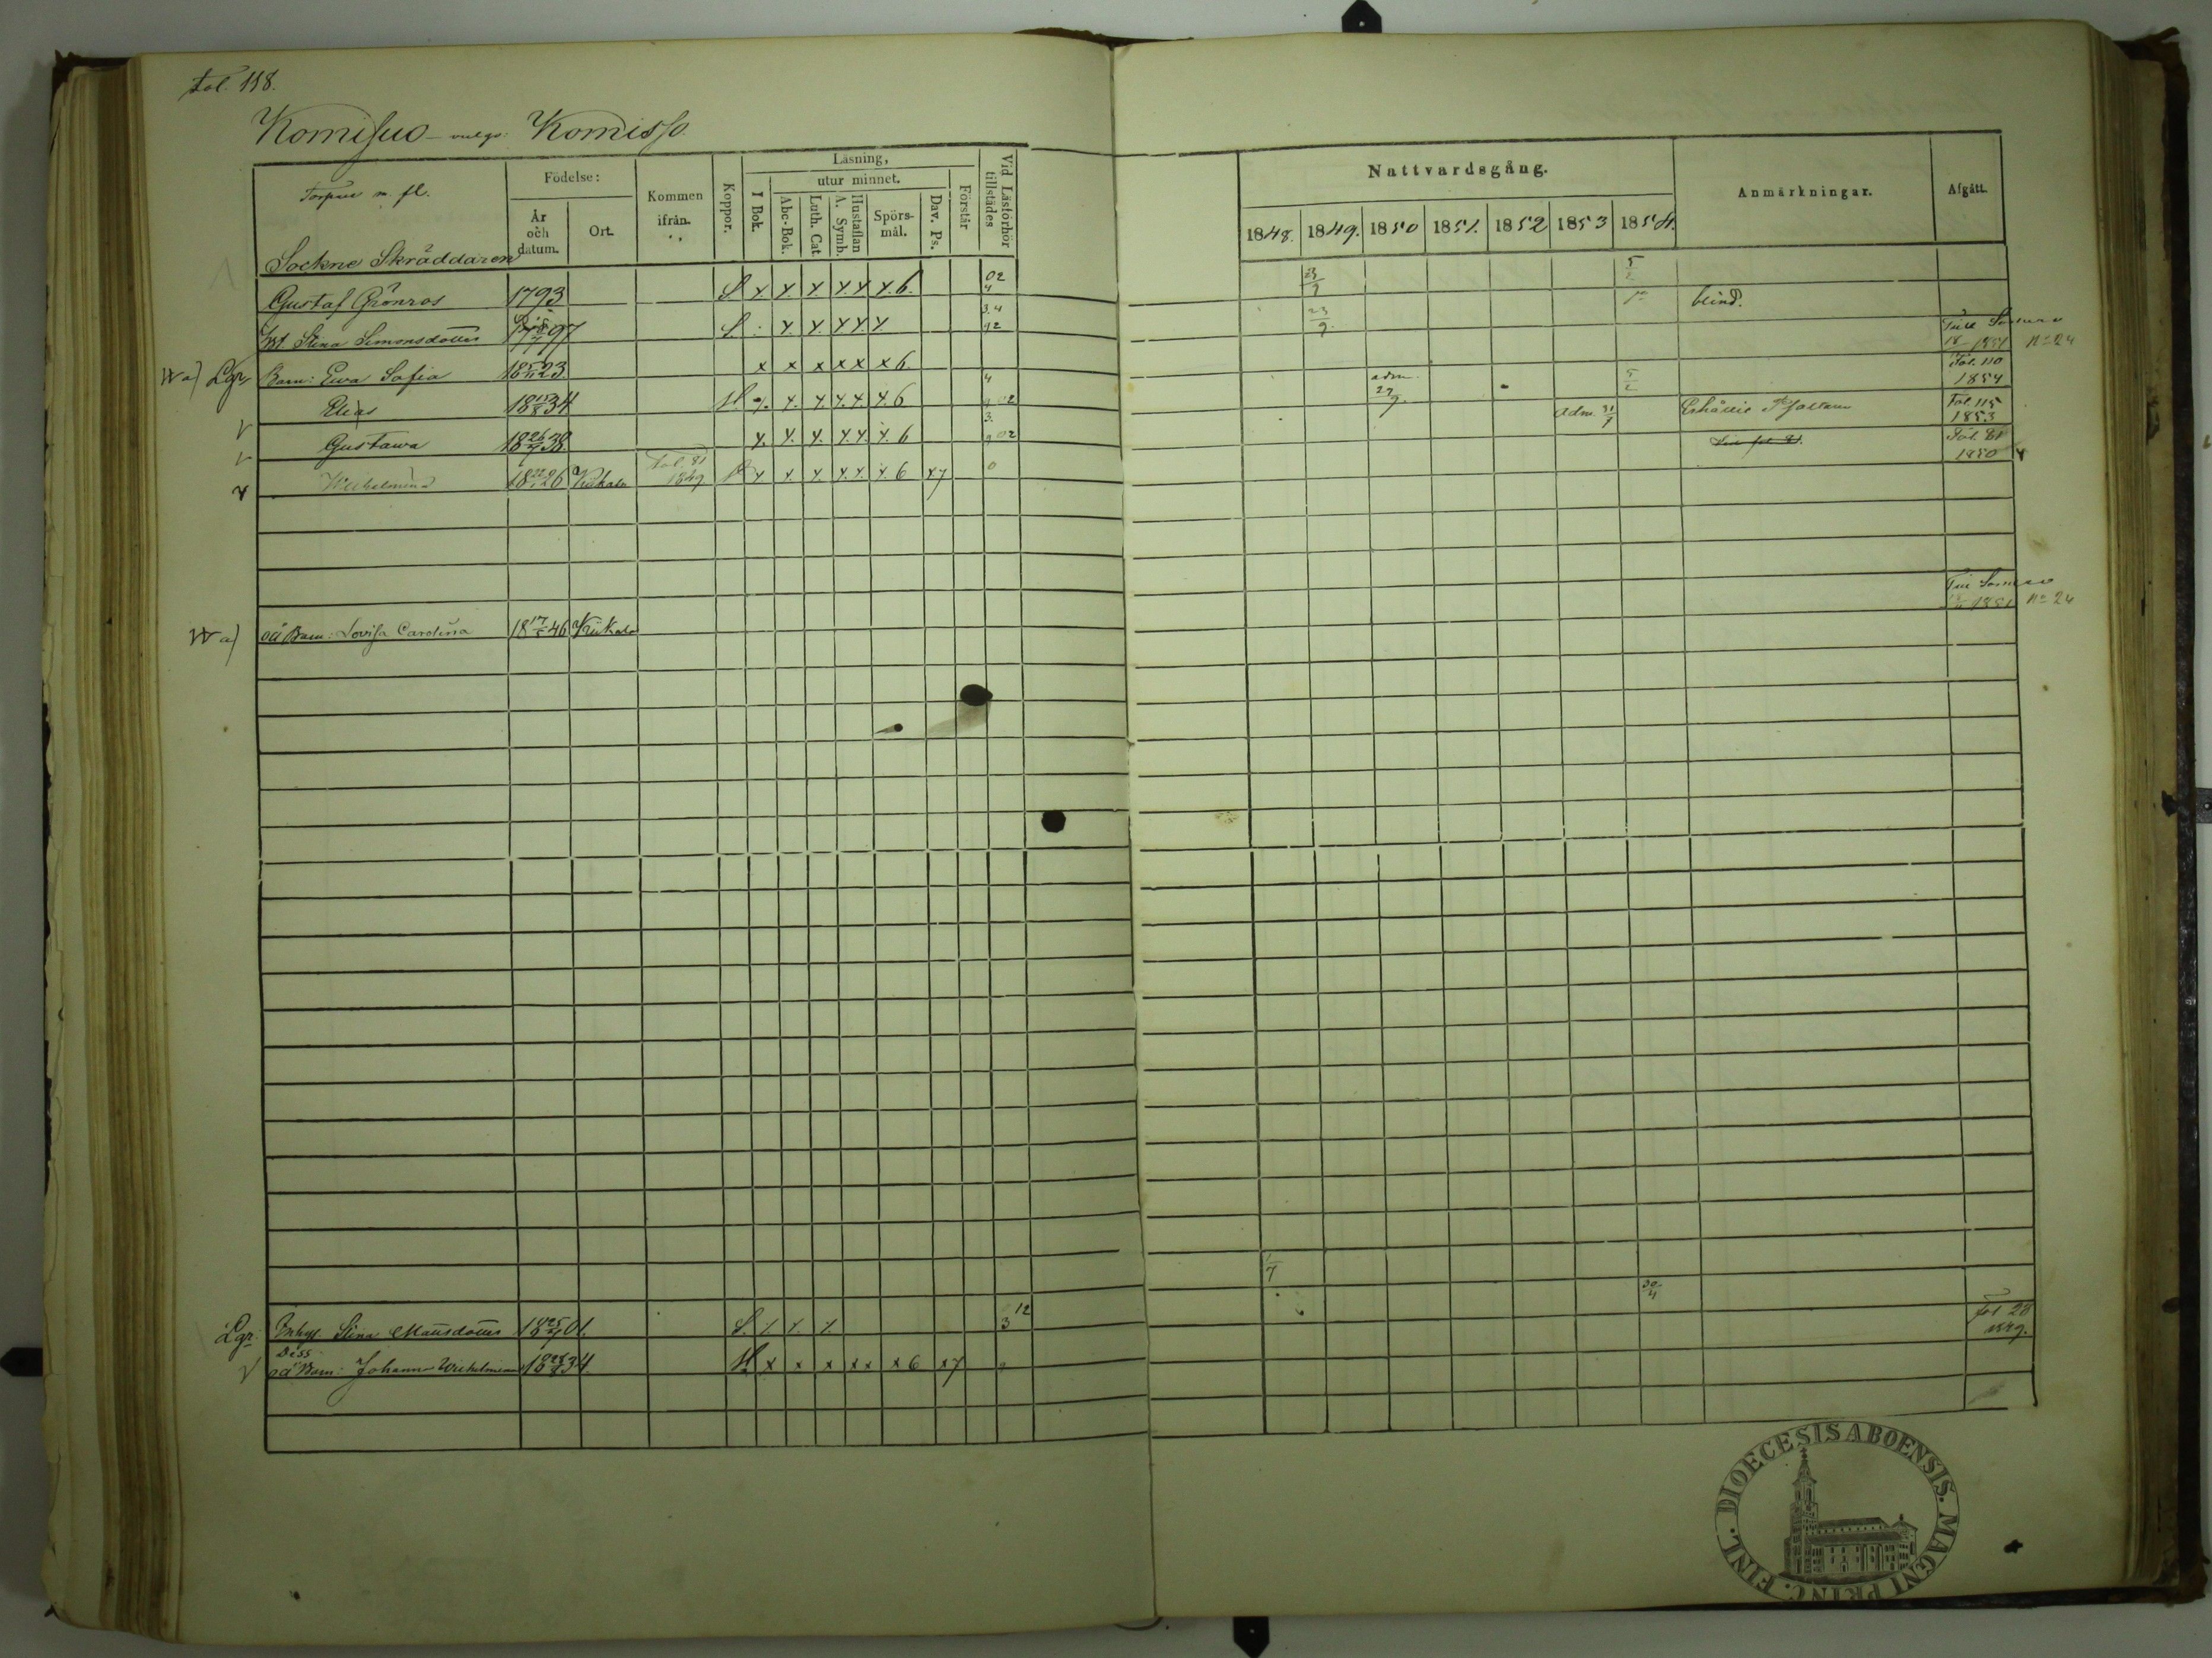 Fol. 118.
Komisuo - vulgo: Komisso
Torpare m. fl.
Födelse:
År och datum.
Ort.
Kommen ifrån.
Koppor.
Läsning,
I Bok.
utur minnet.
Abc-Bok.
Luth. Cat
Hustaflan A. Symb.
Spörsmål.
Dav. Ps.
Förstår
Vid Läsförhör tillstädes
Nattvardsgång.
1848. 1849. 1850 1851. 1852 1853 1854.
Anmärkningar.
Afgått.
Sockne Skräddaren
Gustaf Grönros 1793 S. x x. x. x.x x.6. 02 4 23/9 5/2
blind.
Hst. Stina Simonsdotter 1797 S. x. x. x x x 3.4 12 23/9.
Till Somero 1851 No 24
Wa) Lgr Barn: Ewa Sofia 1823. x x x x x x 6.
Fol. 110 1854
Elias 18 15/8 34 x. x. x. x. x. 6 4 adm. 29/9. 5/2
Erhållit Psaltare
Fol. 115 1853
Gustawa 18 26/7 38. x. x. x. x.x. x. 6 3. 02 adm. 31/7
Fol. 81 1850
Wilhelmina 1826 Kiikala Fol. 81 1849 x x. x. x.x. x. 6 x7 0
Till Somero 1851 No 24
Wa) oä Barn: Lovisa Carolina 18 17/5 46 Kiikala
1/7
Lgr: Inhys. Stina Mattsdotter 1801. S. 12 3 30/4
Fol 28 1849.
Dess
oä Barn: Johanna Wilhelmina 1834. x x x x x x 6 x7
FINL. DIOECESIS ABOENSIS. MAGNI PRINC.